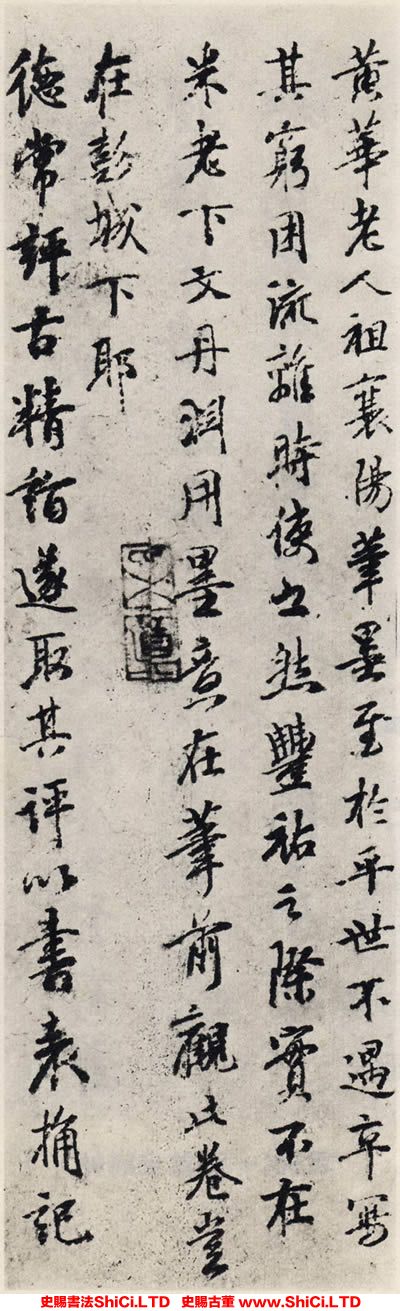 黃華老人祖襄陽筆墨至於平世不遇卒寫
其窮困流離時使之然豐祐之際實不在
米老下文丹淵用墨意在筆前觀此卷豈
在彭城下耶
德常評古精詣遂取其評以書袁桷記
史賜書法ShiCi.LTD 史賜古董 www.ShiCi.LTD